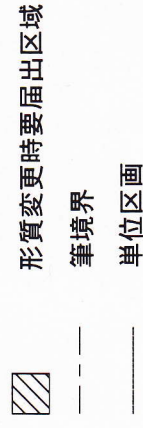 形質変更時要届出区域
筆境界
単位区画